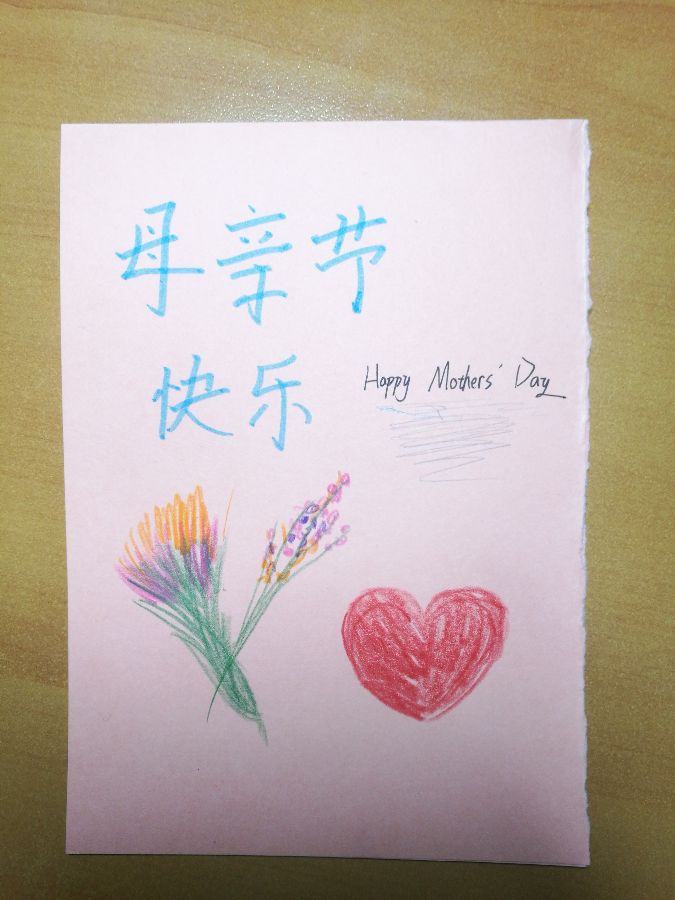 母亲节
快乐
Happy Mothers' Day